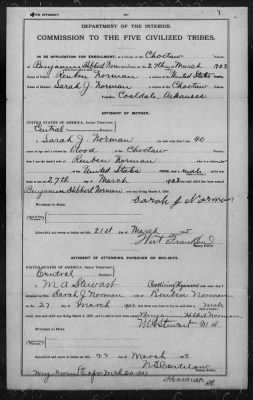 BIRTH AFFIDAVIT.
DEPARTMENT OF THE INTERIOR.
COMMISSION TO THE FIVE CIVILIZED TRIBES.
IN RE APPLICATION FOR ENROLLMENT, as a citizen of the Choctaw Nation,
of Benjamin Hibbert Norman, born on the 27th day of March, 1903
Name of Father: Reuben Norman a citizen of the United States Nation.
Name of Mother: Sarah J. Norman a citizen of the Choctaw Nation.
Postoffice Coaldale, Arkansas
AFFIDAVIT OF MOTHER.
UNITED STATES OF AMERICA, Indian Territory,
Central District.
I, Sarah J. Norman, on oath state that I am 40
years of age and a citizen by blood, of the Choctaw Nation;
that I am the lawful wife of Reuben Norman, who is a citizen, by
of the United States Nation; that a male child was born to me
on 27th day of March, 1903; that said child has been named
Benjamin Hibbert Norman, and was living March 4, 1905.
Sarah J Norman
Witnesses to Mark:
Subscribed and sworn to before me this 21st day of March, 1905.
Wirt Franklin
Notary Public.
AFFIDAVIT OF ATTENDING PHYSICIAN OR MID-WIFE.
UNITED STATES OF AMERICA, Indian Territory,
Central District.
I, M A Stewart, a
Sarah J Norman, wife of Reuben Norman
on the 27 day of March
M A Stewart M.D.
Witnesses to Mark:
Subscribed and sworn to before me this 22 day of March, 1905.
Notary Public.